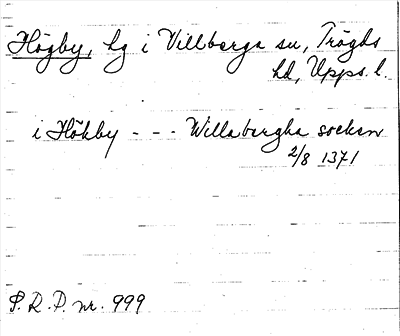 Högby, hg i Villberga sn, Trögds
hd, Upps. l.
i Høkby - - - Willabergha socken
2/8 1371
S. R. P. nr. 999